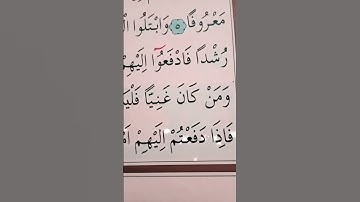 مَعْرُوفًا ﴿٥﴾ وَابْتَلُوا
رُشْدًا فَادْفَعُٓوا اِلَيْهِمْ
وَمَنْ كَانَ غَنِيًّا
فَاِذَا دَفَعْتُمْ اِلَيْهِمْ